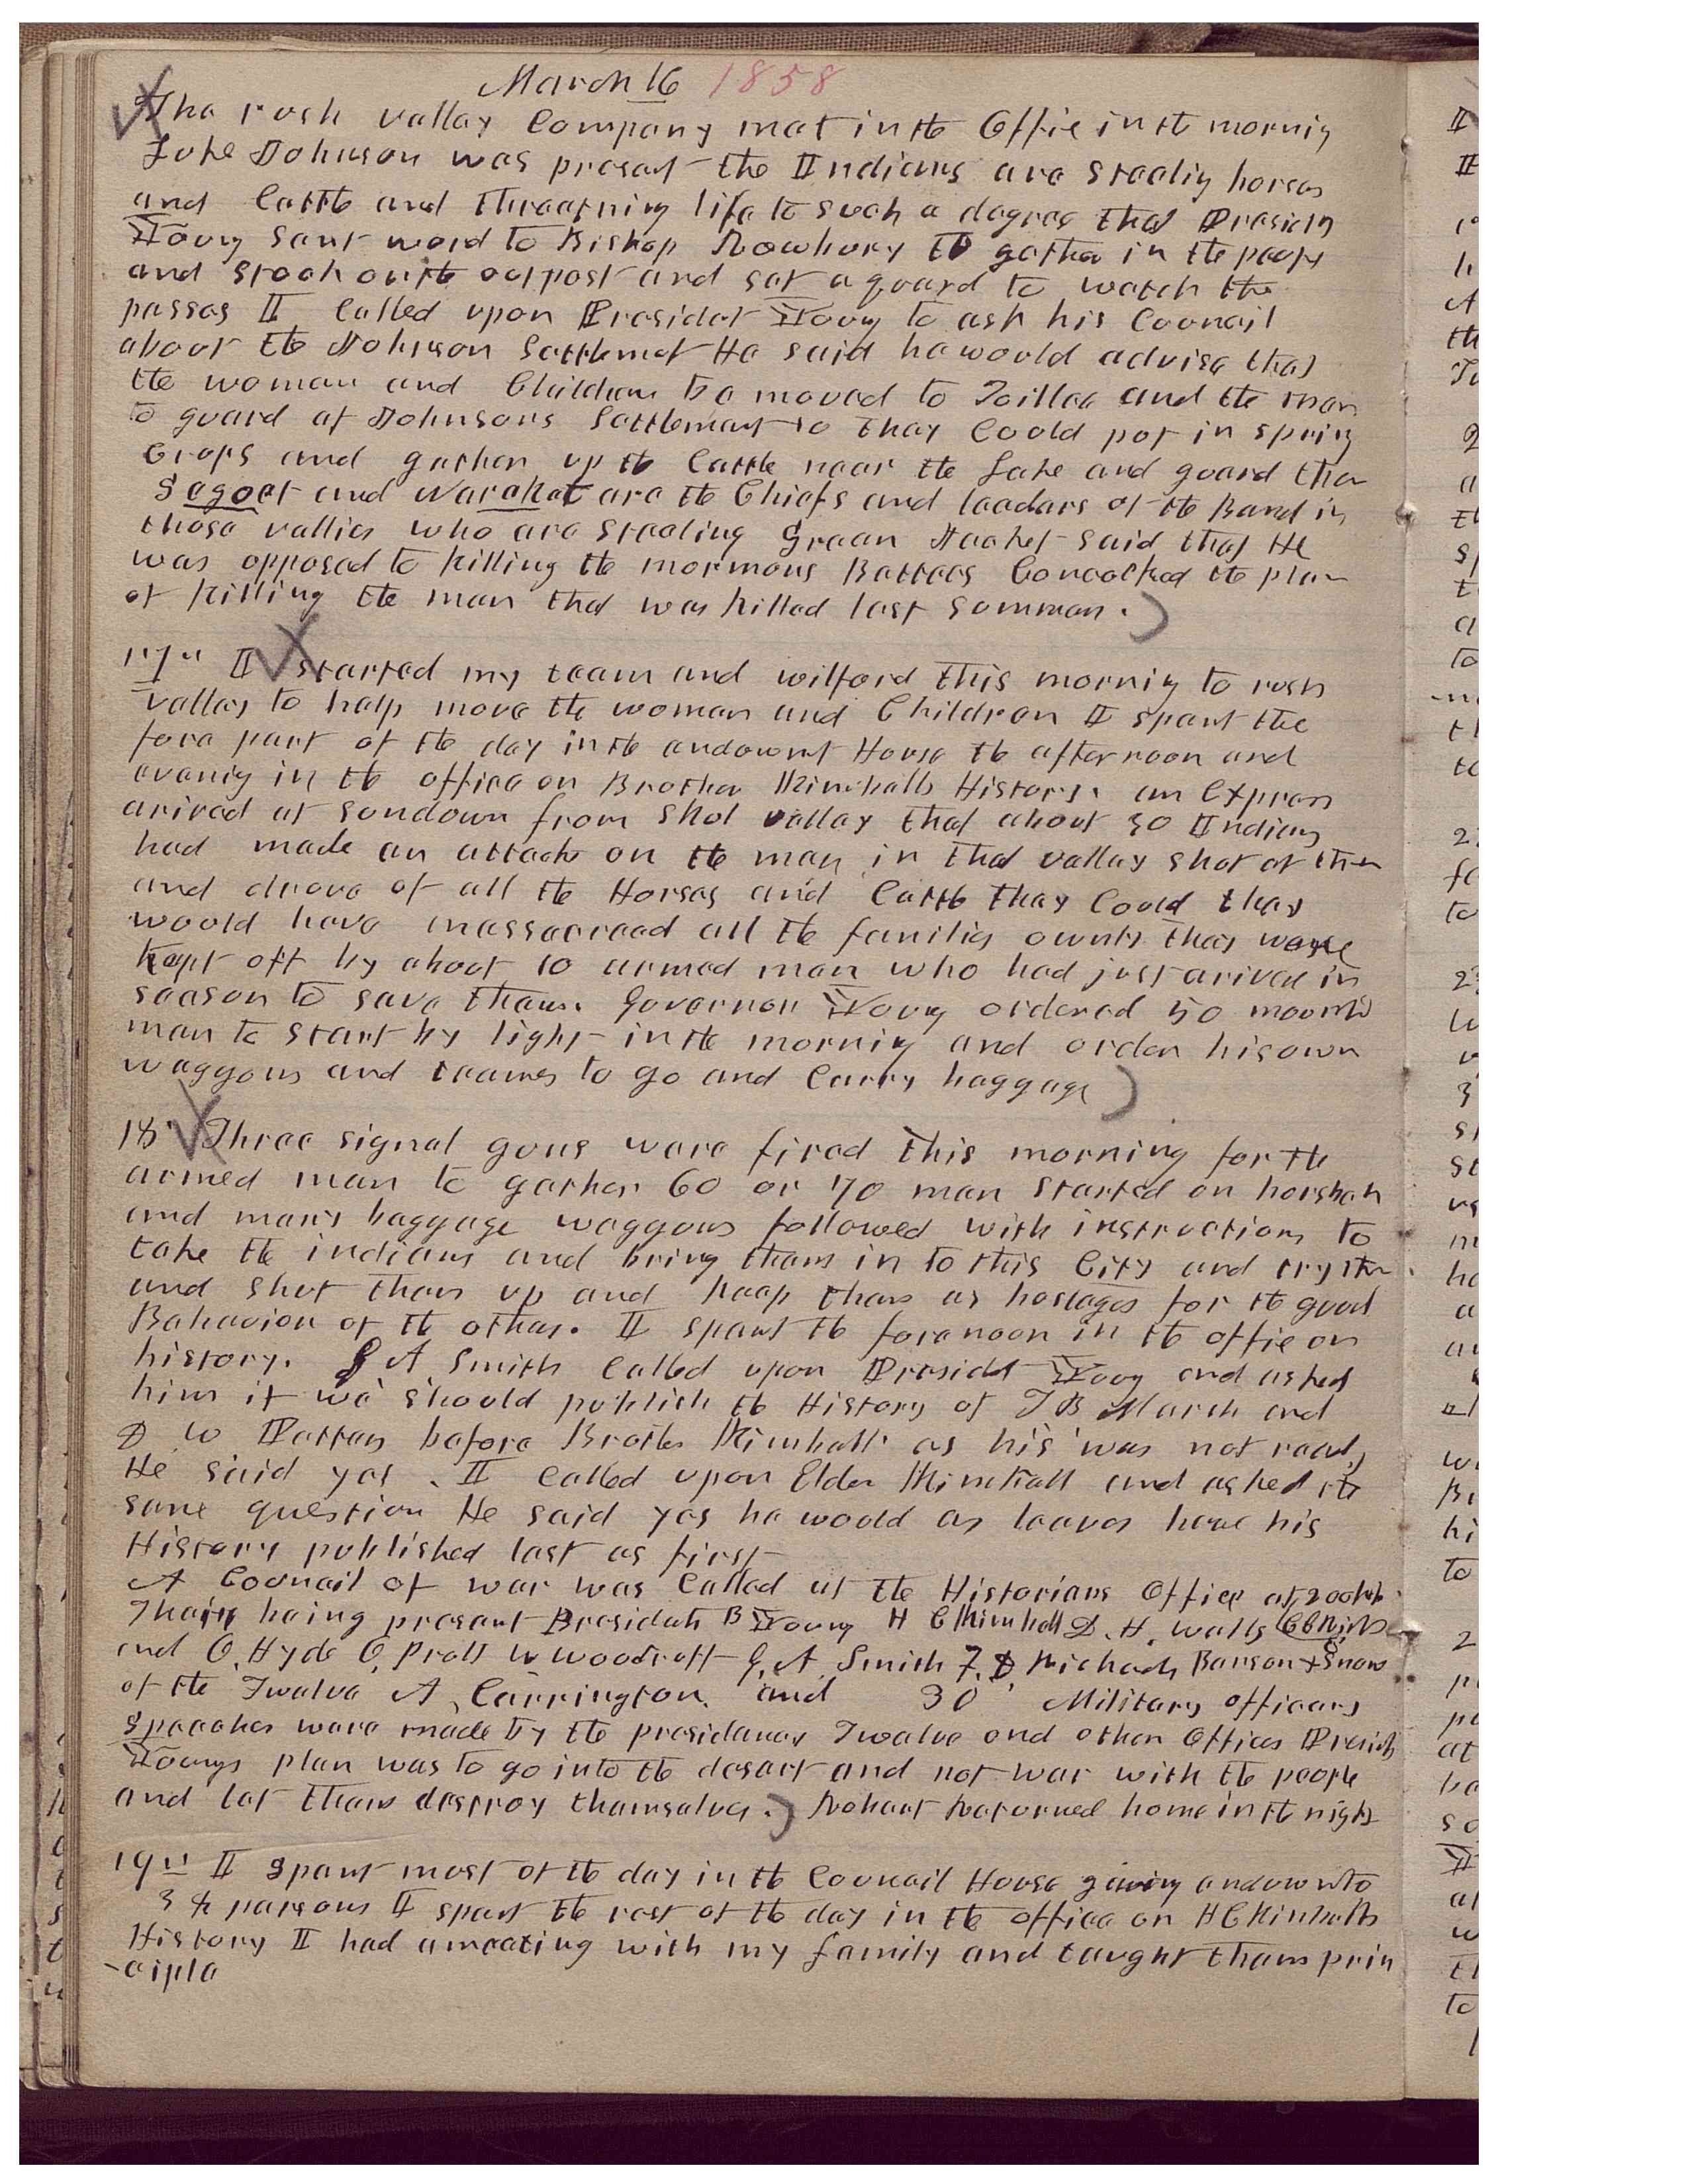 March 16 1858
The rush valley Company met in the Offic in the mornig
Luke Johnson was present the Indians are stealig horses
and Cattle and threatning life to such a degree that Presidt
Young sent word to Bishop Rowbury to gather in the peopl
and stock on the outpost and set a guard to watch the
passes I Called upon President Young to ask his Council
about the Johnson Settlemet He said he would advise that
the women and Children be moved to Toillee and the men
to guard at Johnsons Settlement so they Could put in spring
Crops and gather up the Cattle near the Lake and guard them
Segoet and Narakat are the Chiefs and leaders of the Band in
those vallies who are stealing Green Jacket said that He
was opposed to killing the mormons Battees Concocted the plan
of killing the man that was killed last summer.)
17th I started my team and wilford this mornig to rush
valley to help move the women and Children I spent the
fore part of the day in the endowmt House the afternoon and
evenig in the office on Brother Kimballs History. an Express
arived at sundown from Skul valley that about 30 Indians
had made an attack on the men in that valley shot at them
and drove of all the Horses and Cattle they Could they
would have massacreed all the families ownly they were
kept off by about 10 armed men who had just arived in
season to save them. Governor Young ordered 50 mountd
men to start by light in the mornig and order his own
waggons and teames to go and Carry baggage)
18 Three signal guns were fired this morning for the
armed men to gather 60 or 70 men started on horsbak
and many baggage waggons followed with instructions to
take the indians and bring them in to this City and try them
and shut them up and keep them as hostages for the good
Behavior of the others. I spent the forenoon in the offic on
history. G A Smith Called upon Presidet Young and asked
him if we should publish the History of T B Marsh and
D W Patten before Brother Kimball as his was not ready
He said yes. I Called upon Elder Kimball and asked the
same question He said yes he would as leaves have his
History published last as first
A Council of war was Called at the Historians Office at 2 oclok
Their being present Presidets B Young H C Kimball D. H. Wells C C Rich
and O. Hyde O. Pratt W Woodruff G. A. Smith F. D. Richards Benson + Snow
of the Twelve A Carrington. and 30 Military officers
speeches were made by the presidency Twelve and other Offices Presidt
Youngs plan was to go into the desert and not war with the people
and let them destroy themselves.) Robert Returned home in the night
19th I spent most of the day in the Council House giving endow to
34 persons I spent the rest of the day in the office on H C Kimballs
History I had a meeting with my family and taught them prin
-ciple